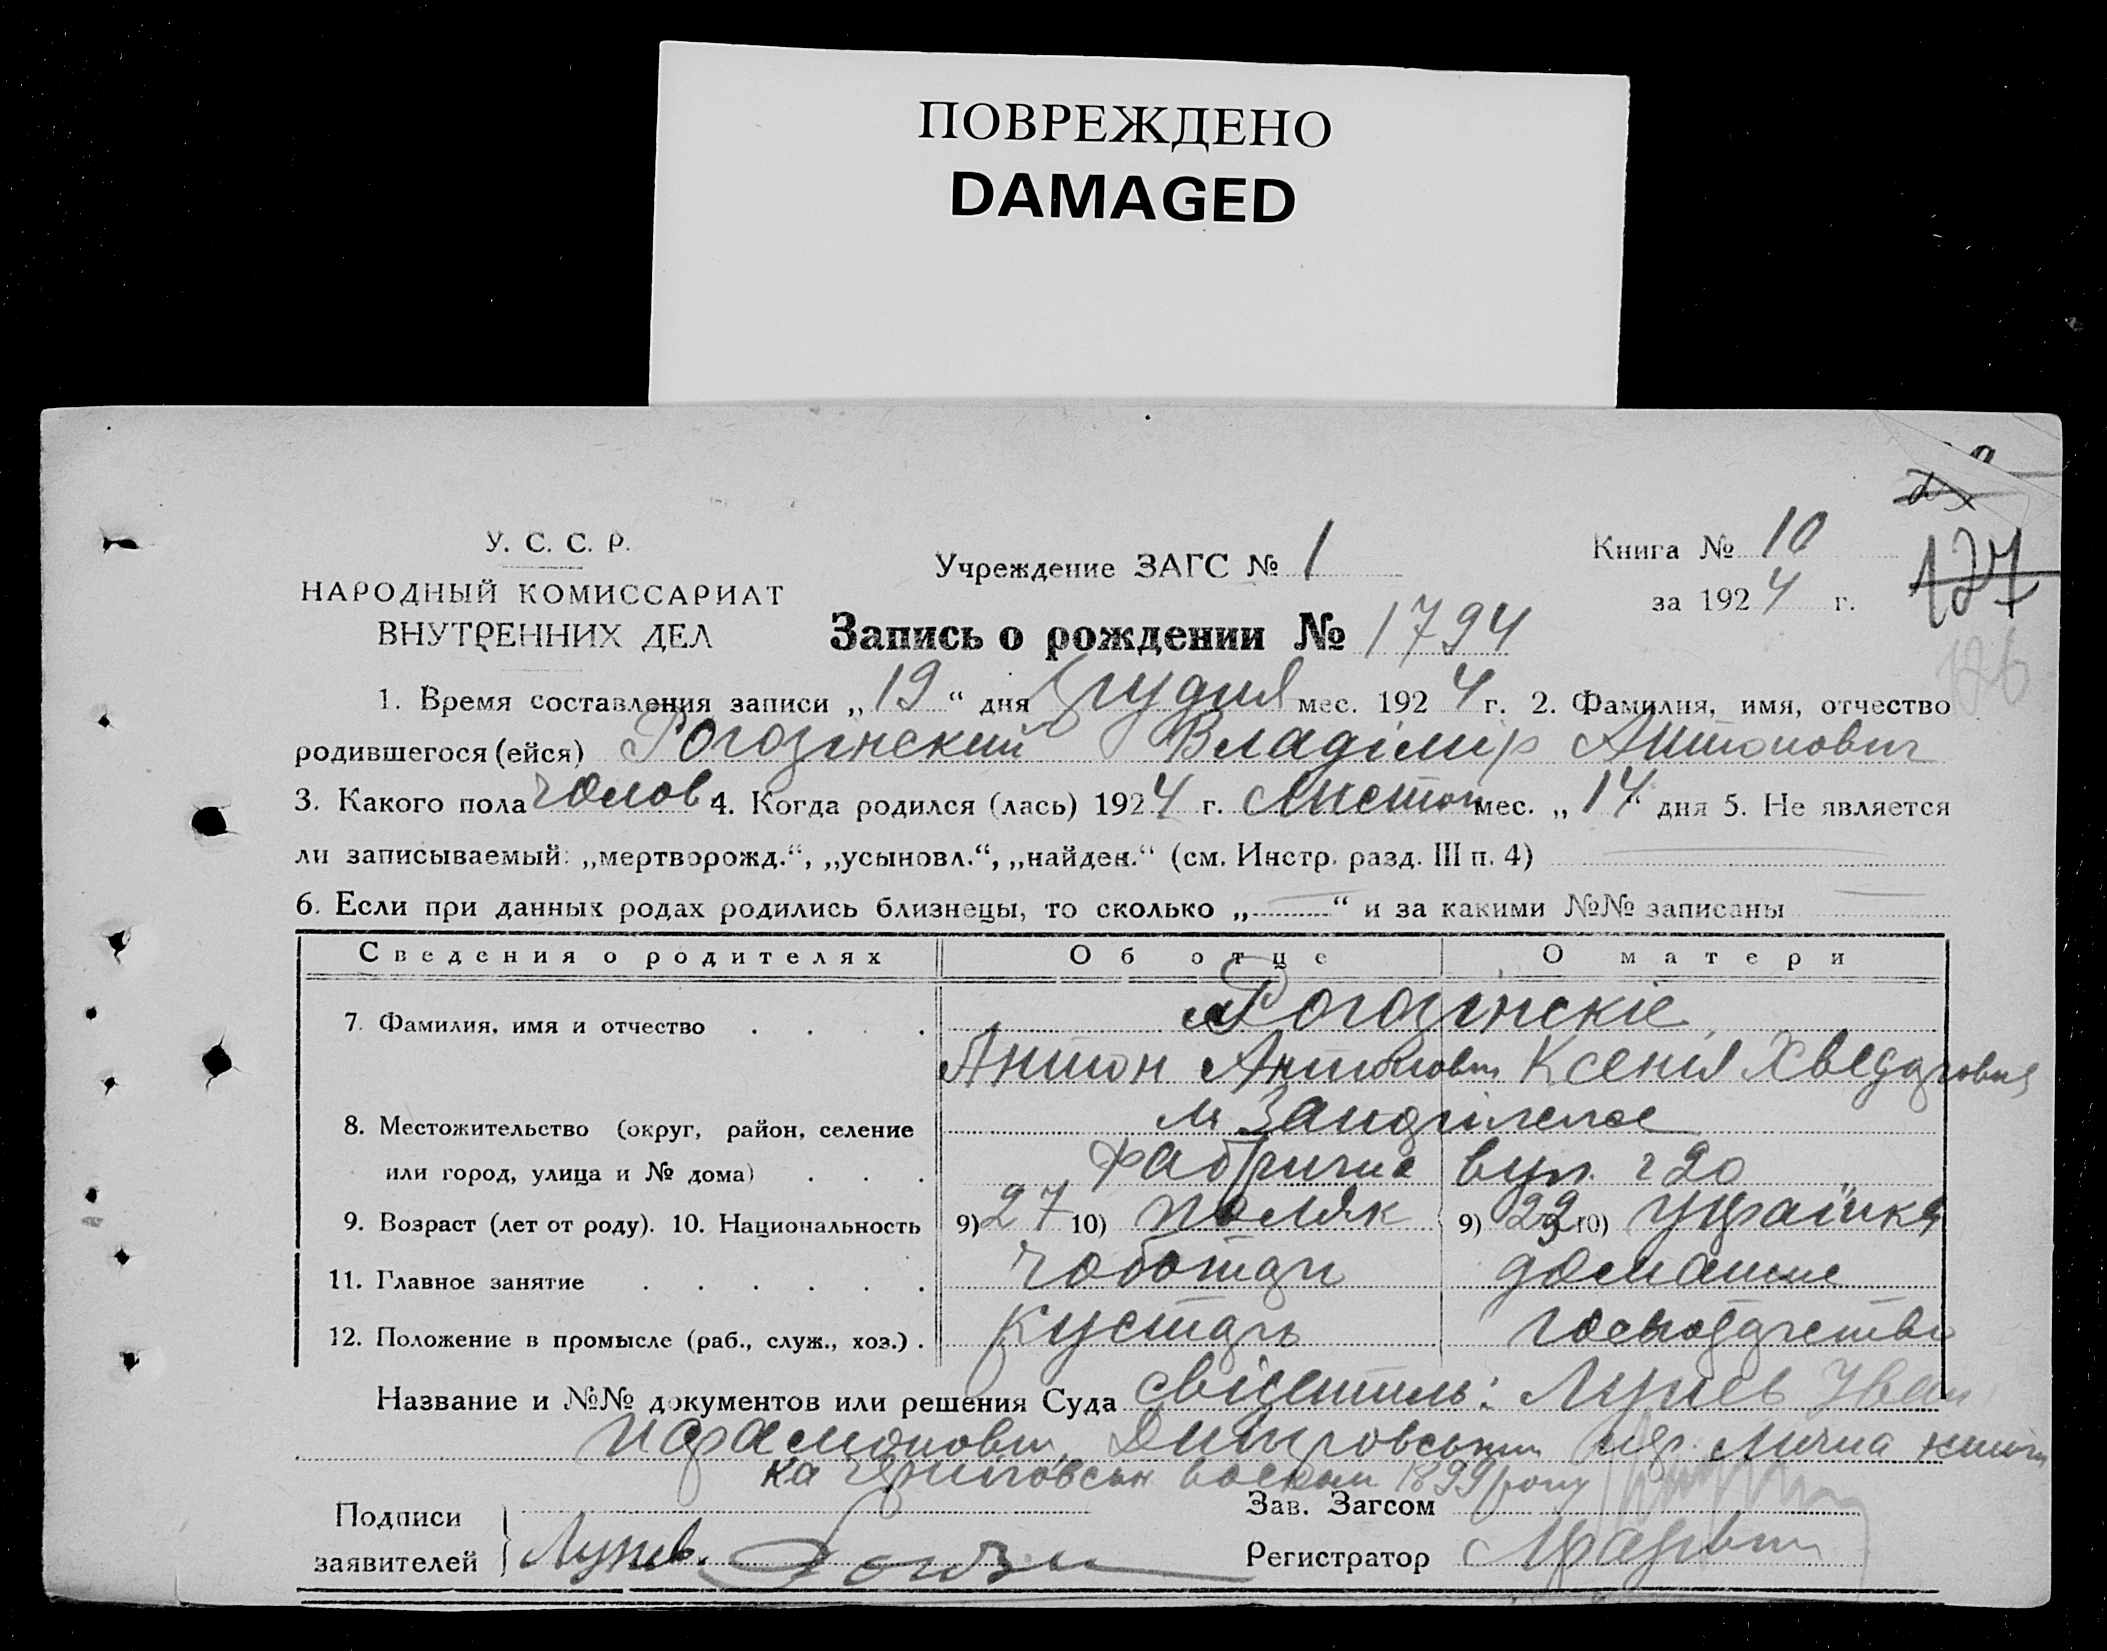 ПОВРЕЖДЕНО
DAMAGED
У. С. С. Р.
НАРОДНЫЙ КОМИССАРИАТ
ВНУТРЕННИХ ДЕЛ
Учреждение ЗАГС № 1
Книга № 10
за 1924 г.
127
126
Запись о рождении № 1794
1. Время составления записи „19“ дня Грудня мес. 1924 г. 2. Фамилия, имя, отчество
родившегося (ейся) Рогозінский Владімір Антонович
3. Какого пола чолов 4. Когда родился (лась) 1924 г. Листоп мес. „14“ дня 5. Не является
ли записываемый: „мертворожд.“, „усыновл.“, „найден.“ (см. Инстр. разд. III п. 4)
6. Если при данных родах родились близнецы, то сколько „ “ и за какими №№ записаны
Сведения о родителях Об отце О матери
7. Фамилия, имя и отчество Рогозінскіе
Антон Антонович Ксенія
8. Местожительство (округ, район, селение
или город, улица и № дома) Фабрична вул. 20
9. Возраст (лет от роду). 10. Национальность 9) 27 10) поляк 9) 22 10) українка
11. Главное занятие чоботар домашнє
12. Положение в промысле (раб., служ., хоз.) кустарь господарство
Название и №№ документов или решения Суда Лунев Іван
1899 року
Подписи
заявителей Лунев.
Зав. Загсом
Регистратор